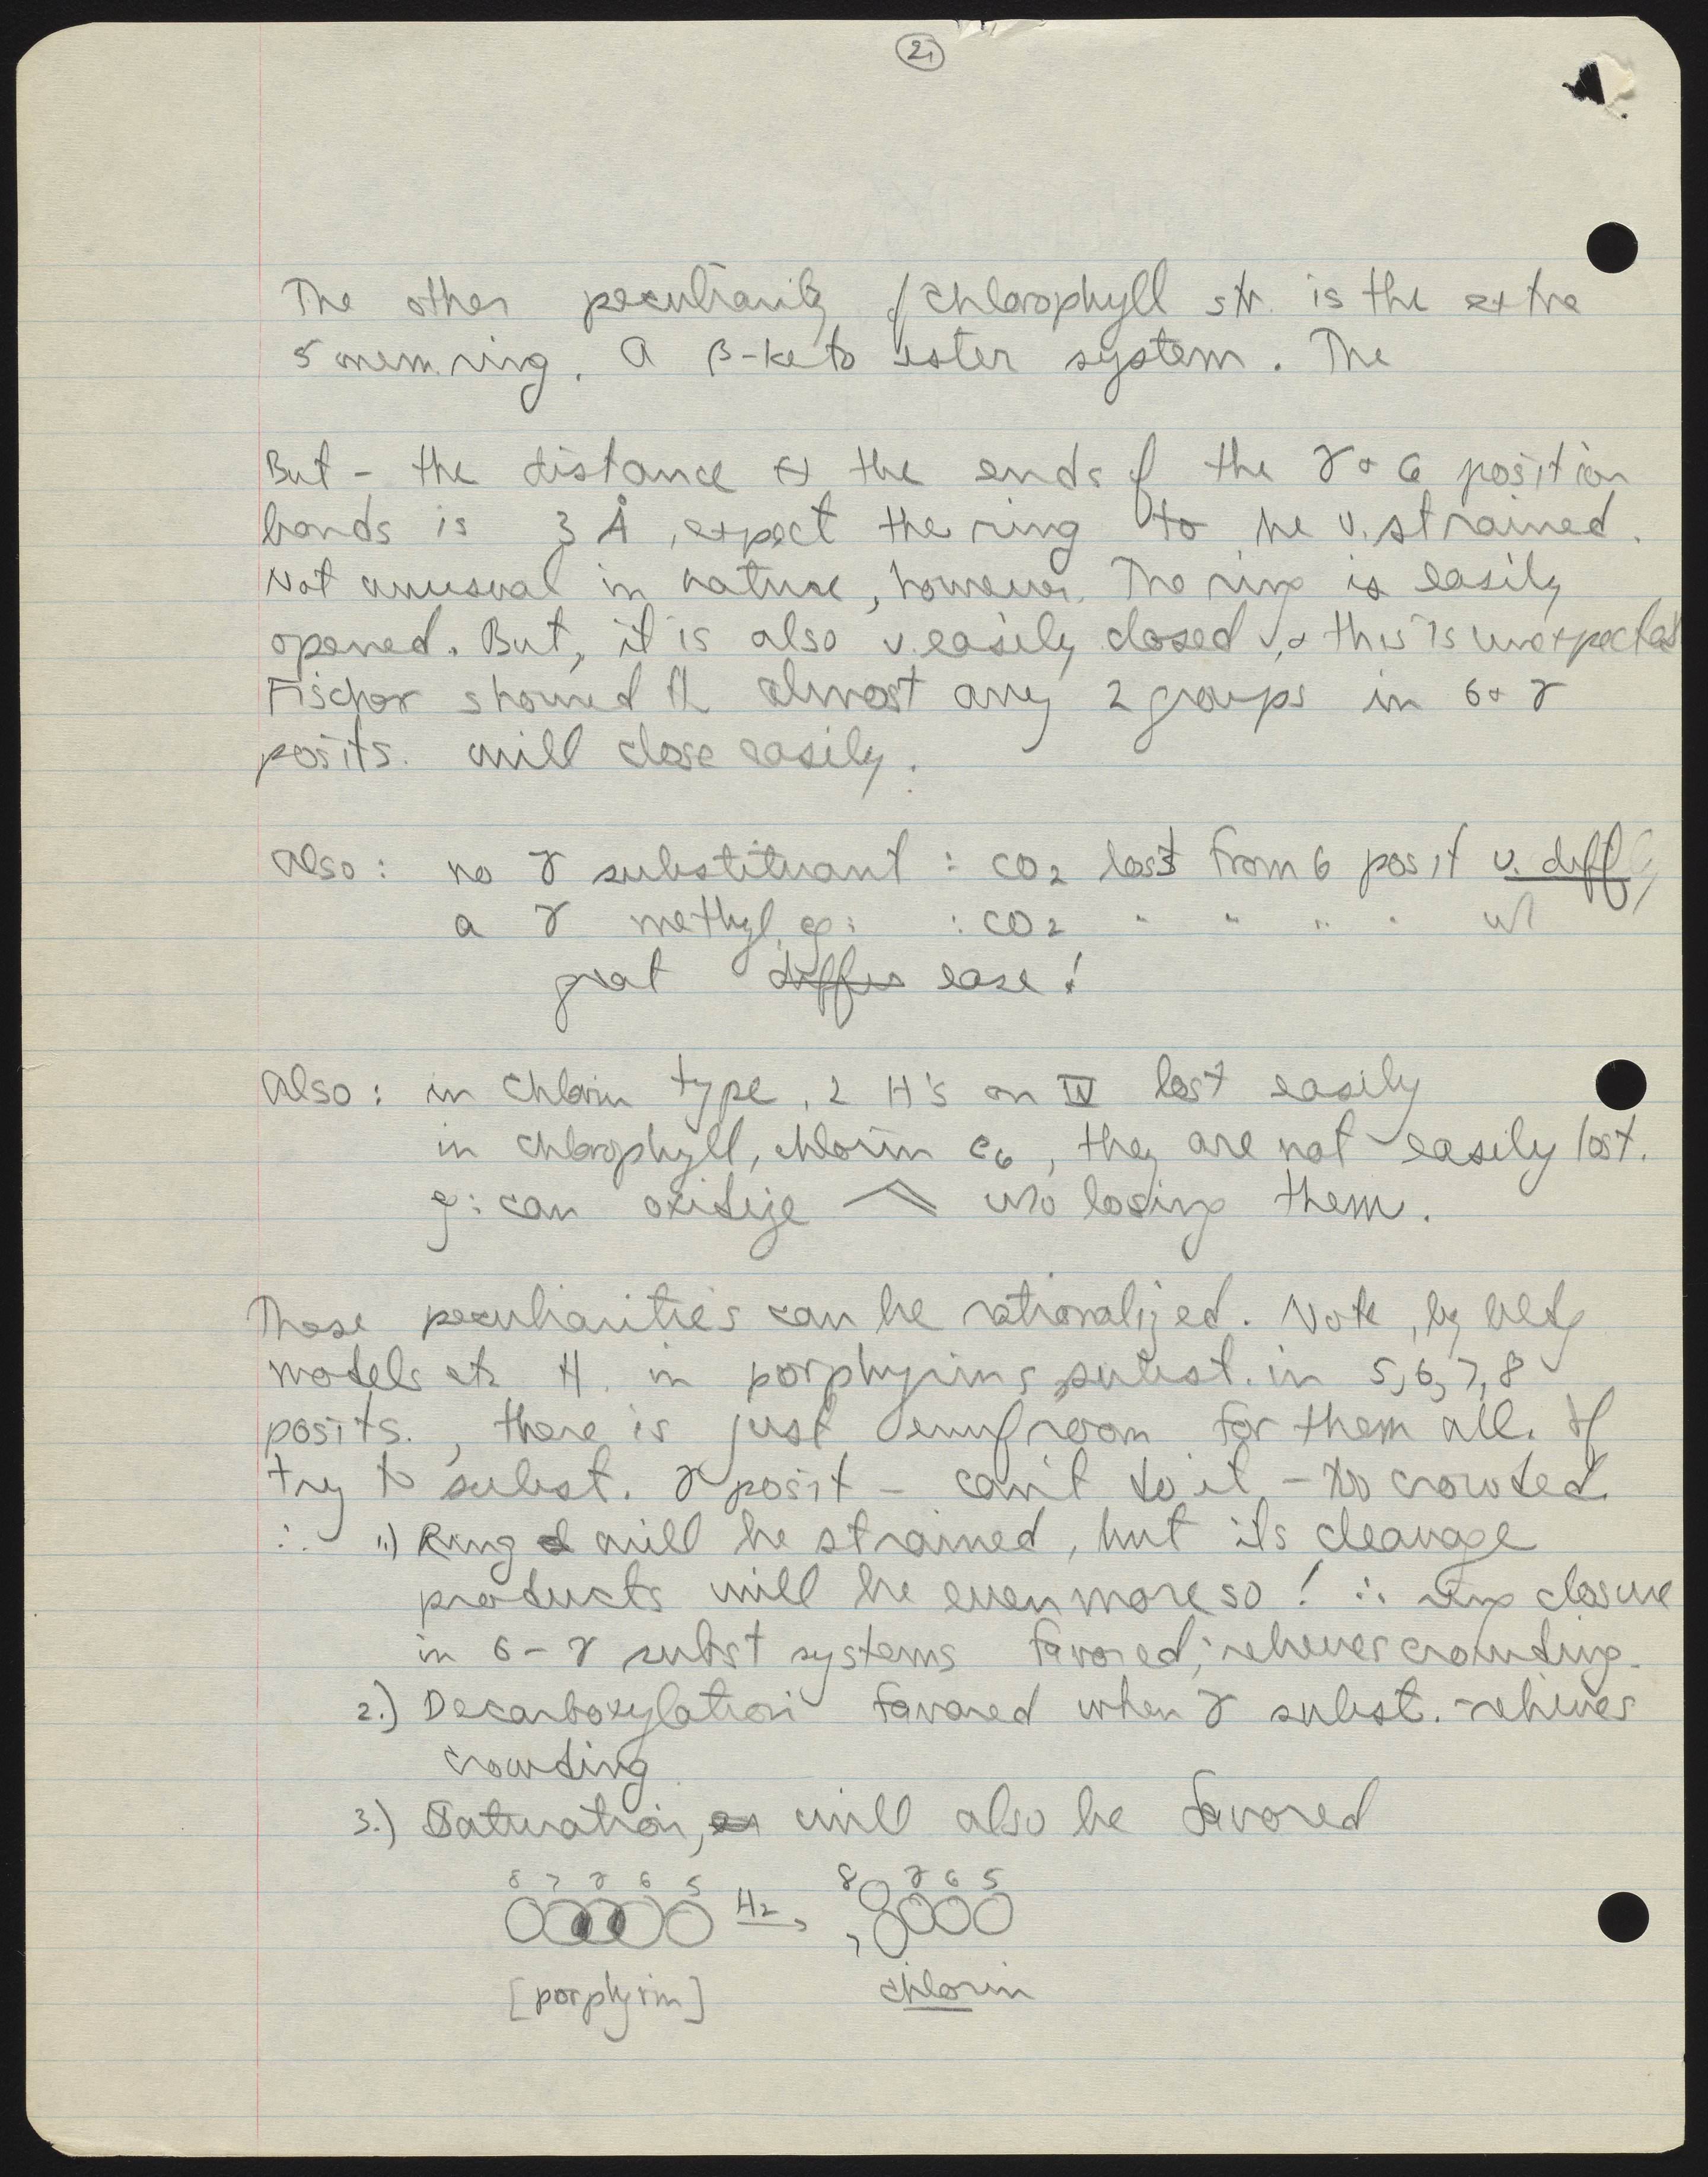 2,
The other peculiarity of chlorophyll str. is the extra
5 mem. ring. A β-keto ester system. The
But – the distance ↔ the ends of the γ & 6 position
bonds is 3 Å, expect the ring to be v. strained.
Not unusual in nature, however. The ring is easily
opened. But, it is also v. easily closed, & this is unexpected
Fischer showed th almost any 2 groups in 6 & γ
posits. will close easily.
Also: no γ substituant : CO2 lost from 6 posit v. diff
a γ methyl, eg: : CO2 " " " " w/
great differ ease!
Also: in chlorin type, 2 H's on IV lost easily
in chlorophyll, chlorin e6, they are not easily lost.
eg: can oxidize w/o losing them.
These peculiarities can be rationalized. Note, by bldg
models etc in porphyrins subst. in 5, 6, 7, 8
posits., there is just enuf room for them all. If
try to subst. γ posit – can't do it – too crowded.
∴ 1.) Ring will be strained, but its cleavage
products will be even more so! ∴ ring closure
in 6-γ subst systems favored; relieves crowding.
2.) Decarboxylation favored when γ subst. – relieves
crowding
3.) Saturation, will also be favored
8 7 γ 6 5 H2 → 8 7 γ 6 5
[porphyrin] chlorin